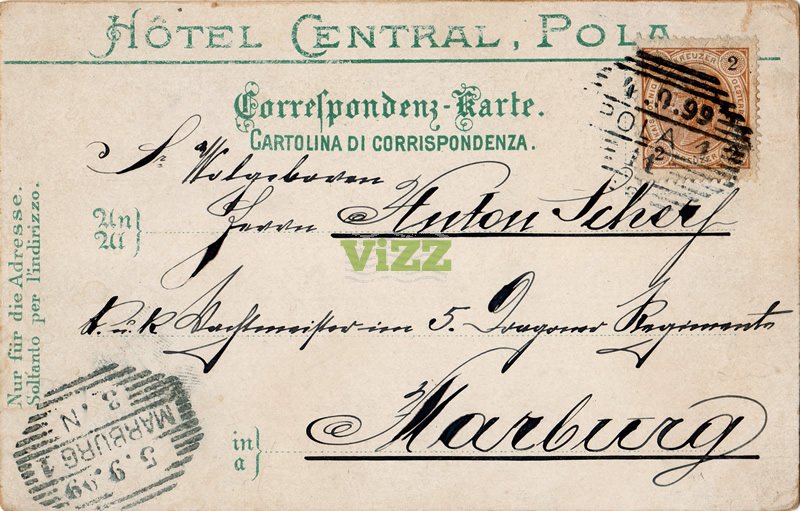 HÔTEL CENTRAL, POLA
2
KREUZER
4.9.99
POLA 1
Correspondenz-Karte.
CARTOLINA DI CORRISPONDENZA.
Sr Wolgeboren
An
Al
Herrn Anton Scherf
ViZZ
k. u. k Wachtmeister im 5. Dragoner Regimente
in
a
Marburg
Nur für die Adresse.
Soltanto per l'indirizzo.
MARBURG 1
5.9.99
3. N